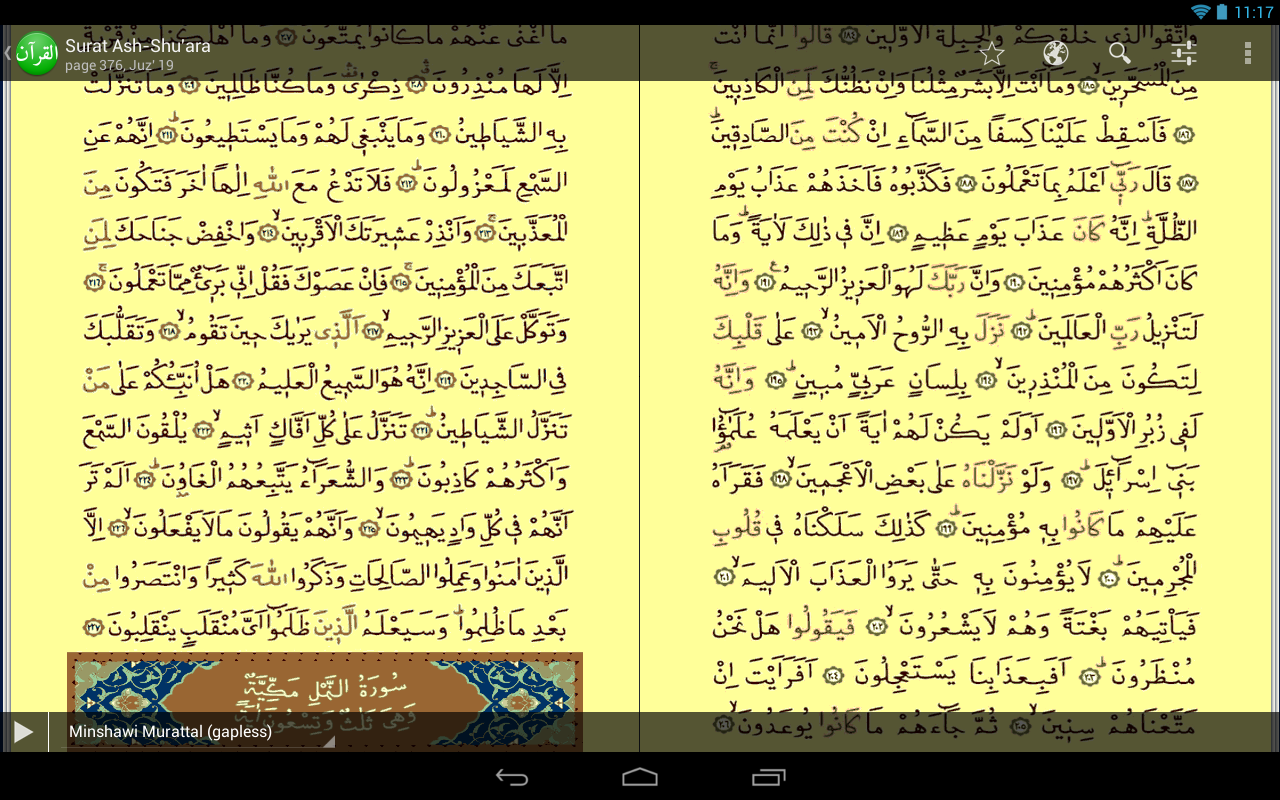 11:17
القرآن
Surat Ash-Shu'ara
page 376, Juz' 19
وَاتَّقُوا الَّذ۪ي خَلَقَكُمْ وَالْجِبِلَّةَ الْاَوَّل۪ينَۜ ﴿١٨٤﴾ قَالُٓوا اِنَّمَٓا اَنْتَ
مِنَ الْمُسَحَّر۪ينَۙ ﴿١٨٥﴾ وَمَٓا اَنْتَ اِلَّا بَشَرٌ مِثْلُنَا وَاِنْ نَظُنُّكَ لَمِنَ الْكَاذِب۪ينَۚ
﴿١٨٦﴾ فَاَسْقِطْ عَلَيْنَا كِسَفًا مِنَ السَّمَٓاءِ اِنْ كُنْتَ مِنَ الصَّادِق۪ينَۜ
﴿١٨٧﴾ قَالَ رَبّ۪ٓي اَعْلَمُ بِمَا تَعْمَلُونَ ﴿١٨٨﴾ فَكَذَّبُوهُ فَاَخَذَهُمْ عَذَابُ يَوْمِ
الظُّلَّةِۜ اِنَّهُ كَانَ عَذَابَ يَوْمٍ عَظ۪يمٍ ﴿١٨٩﴾ اِنَّ ف۪ي ذٰلِكَ لَاٰيَةًۜ وَمَا
كَانَ اَكْثَرُهُمْ مُؤْمِن۪ينَ ﴿١٩٠﴾ وَاِنَّ رَبَّكَ لَهُوَ الْعَز۪يزُ الرَّح۪يمُ۟ ﴿١٩١﴾ وَاِنَّهُ
لَتَنْز۪يلُ رَبِّ الْعَالَم۪ينَۜ ﴿١٩٢﴾ نَزَلَ بِهِ الرُّوحُ الْاَم۪ينُۙ ﴿١٩٣﴾ عَلٰى قَلْبِكَ
لِتَكُونَ مِنَ الْمُنْذِر۪ينَۙ ﴿١٩٤﴾ بِلِسَانٍ عَرَبِيٍّ مُب۪ينٍۜ ﴿١٩٥﴾ وَاِنَّهُ
لَف۪ي زُبُرِ الْاَوَّل۪ينَ ﴿١٩٦﴾ اَوَلَمْ يَكُنْ لَهُمْ اٰيَةً اَنْ يَعْلَمَهُ عُلَمٰٓؤُ۬ا
بَن۪ٓي اِسْرَٓاء۪يلَۜ ﴿١٩٧﴾ وَلَوْ نَزَّلْنَاهُ عَلٰى بَعْضِ الْاَعْجَم۪ينَۙ ﴿١٩٨﴾ فَقَرَاَهُ
عَلَيْهِمْ مَا كَانُوا بِه۪ مُؤْمِن۪ينَۜ ﴿١٩٩﴾ كَذٰلِكَ سَلَكْنَاهُ ف۪ي قُلُوبِ
الْمُجْرِم۪ينَۜ ﴿٢٠٠﴾ لَا يُؤْمِنُونَ بِه۪ حَتّٰى يَرَوُا الْعَذَابَ الْاَل۪يمَۙ ﴿٢٠١﴾
فَيَاْتِيَهُمْ بَغْتَةً وَهُمْ لَا يَشْعُرُونَۙ ﴿٢٠٢﴾ فَيَقُولُوا هَلْ نَحْنُ
مُنْظَرُونَۜ ﴿٢٠٣﴾ اَفَبِعَذَابِنَا يَسْتَعْجِلُونَ ﴿٢٠٤﴾ اَفَرَاَيْتَ اِنْ
مَتَّعْنَاهُمْ سِن۪ينَۙ ﴿٢٠٥﴾ ثُمَّ جَٓاءَهُمْ مَا كَانُوا يُوعَدُونَۙ ﴿٢٠٦﴾
مَٓا اَغْنٰى عَنْهُمْ مَا كَانُوا يُمَتَّعُونَۜ ﴿٢٠٧﴾ وَمَٓا اَهْلَكْنَا مِنْ قَرْيَةٍ
اِلَّا لَهَا مُنْذِرُونَۗ ﴿٢٠٨﴾ ذِكْرٰى۠ وَمَا كُنَّا ظَالِم۪ينَ ﴿٢٠٩﴾ وَمَا تَنَزَّلَتْ
بِهِ الشَّيَاط۪ينُ ﴿٢١٠﴾ وَمَا يَنْبَغ۪ي لَهُمْ وَمَا يَسْتَط۪يعُونَۜ ﴿٢١١﴾ اِنَّهُمْ عَنِ
السَّمْعِ لَمَعْزُولُونَۜ ﴿٢١٢﴾ فَلَا تَدْعُ مَعَ اللّٰهِ اِلٰهًا اٰخَرَ فَتَكُونَ مِنَ
الْمُعَذَّب۪ينَۚ ﴿٢١٣﴾ وَاَنْذِرْ عَش۪يرَتَكَ الْاَقْرَب۪ينَۙ ﴿٢١٤﴾ وَاخْفِضْ جَنَاحَكَ لِمَنِ
اتَّبَعَكَ مِنَ الْمُؤْمِن۪ينَۚ ﴿٢١٥﴾ فَاِنْ عَصَوْكَ فَقُلْ اِنّ۪ي بَر۪ٓيءٌ مِمَّا تَعْمَلُونَۚ ﴿٢١٦﴾
وَتَوَكَّلْ عَلَى الْعَز۪يزِ الرَّح۪يمِۙ ﴿٢١٧﴾ اَلَّذ۪ي يَرٰيكَ ح۪ينَ تَقُومُۙ ﴿٢١٨﴾ وَتَقَلُّبَكَ
فِي السَّاجِد۪ينَ ﴿٢١٩﴾ اِنَّهُ هُوَ السَّم۪يعُ الْعَل۪يمُ ﴿٢٢٠﴾ هَلْ اُنَبِّئُكُمْ عَلٰى مَنْ
تَنَزَّلُ الشَّيَاط۪ينُۜ ﴿٢٢١﴾ تَنَزَّلُ عَلٰى كُلِّ اَفَّاكٍ اَث۪يمٍۙ ﴿٢٢٢﴾ يُلْقُونَ السَّمْعَ
وَاَكْثَرُهُمْ كَاذِبُونَۜ ﴿٢٢٣﴾ وَالشُّعَرَٓاءُ يَتَّبِعُهُمُ الْغَاوُ۫نَۜ ﴿٢٢٤﴾ اَلَمْ تَرَ
اَنَّهُمْ ف۪ي كُلِّ وَادٍ يَه۪يمُونَۙ ﴿٢٢٥﴾ وَاَنَّهُمْ يَقُولُونَ مَا لَا يَفْعَلُونَۙ ﴿٢٢٦﴾ اِلَّا
الَّذ۪ينَ اٰمَنُوا وَعَمِلُوا الصَّالِحَاتِ وَذَكَرُوا اللّٰهَ كَث۪يرًا وَانْتَصَرُوا مِنْ
بَعْدِ مَا ظُلِمُواۜ وَسَيَعْلَمُ الَّذ۪ينَ ظَلَمُٓوا اَيَّ مُنْقَلَبٍ يَنْقَلِبُونَ ﴿٢٢٧﴾
سُورَةُ النَّمْلِ مَكِّيَّةٌ
وَهِيَ ثَلَاثٌ وَتِسْعُونَ اٰيَةً
Minshawi Murattal (gapless)